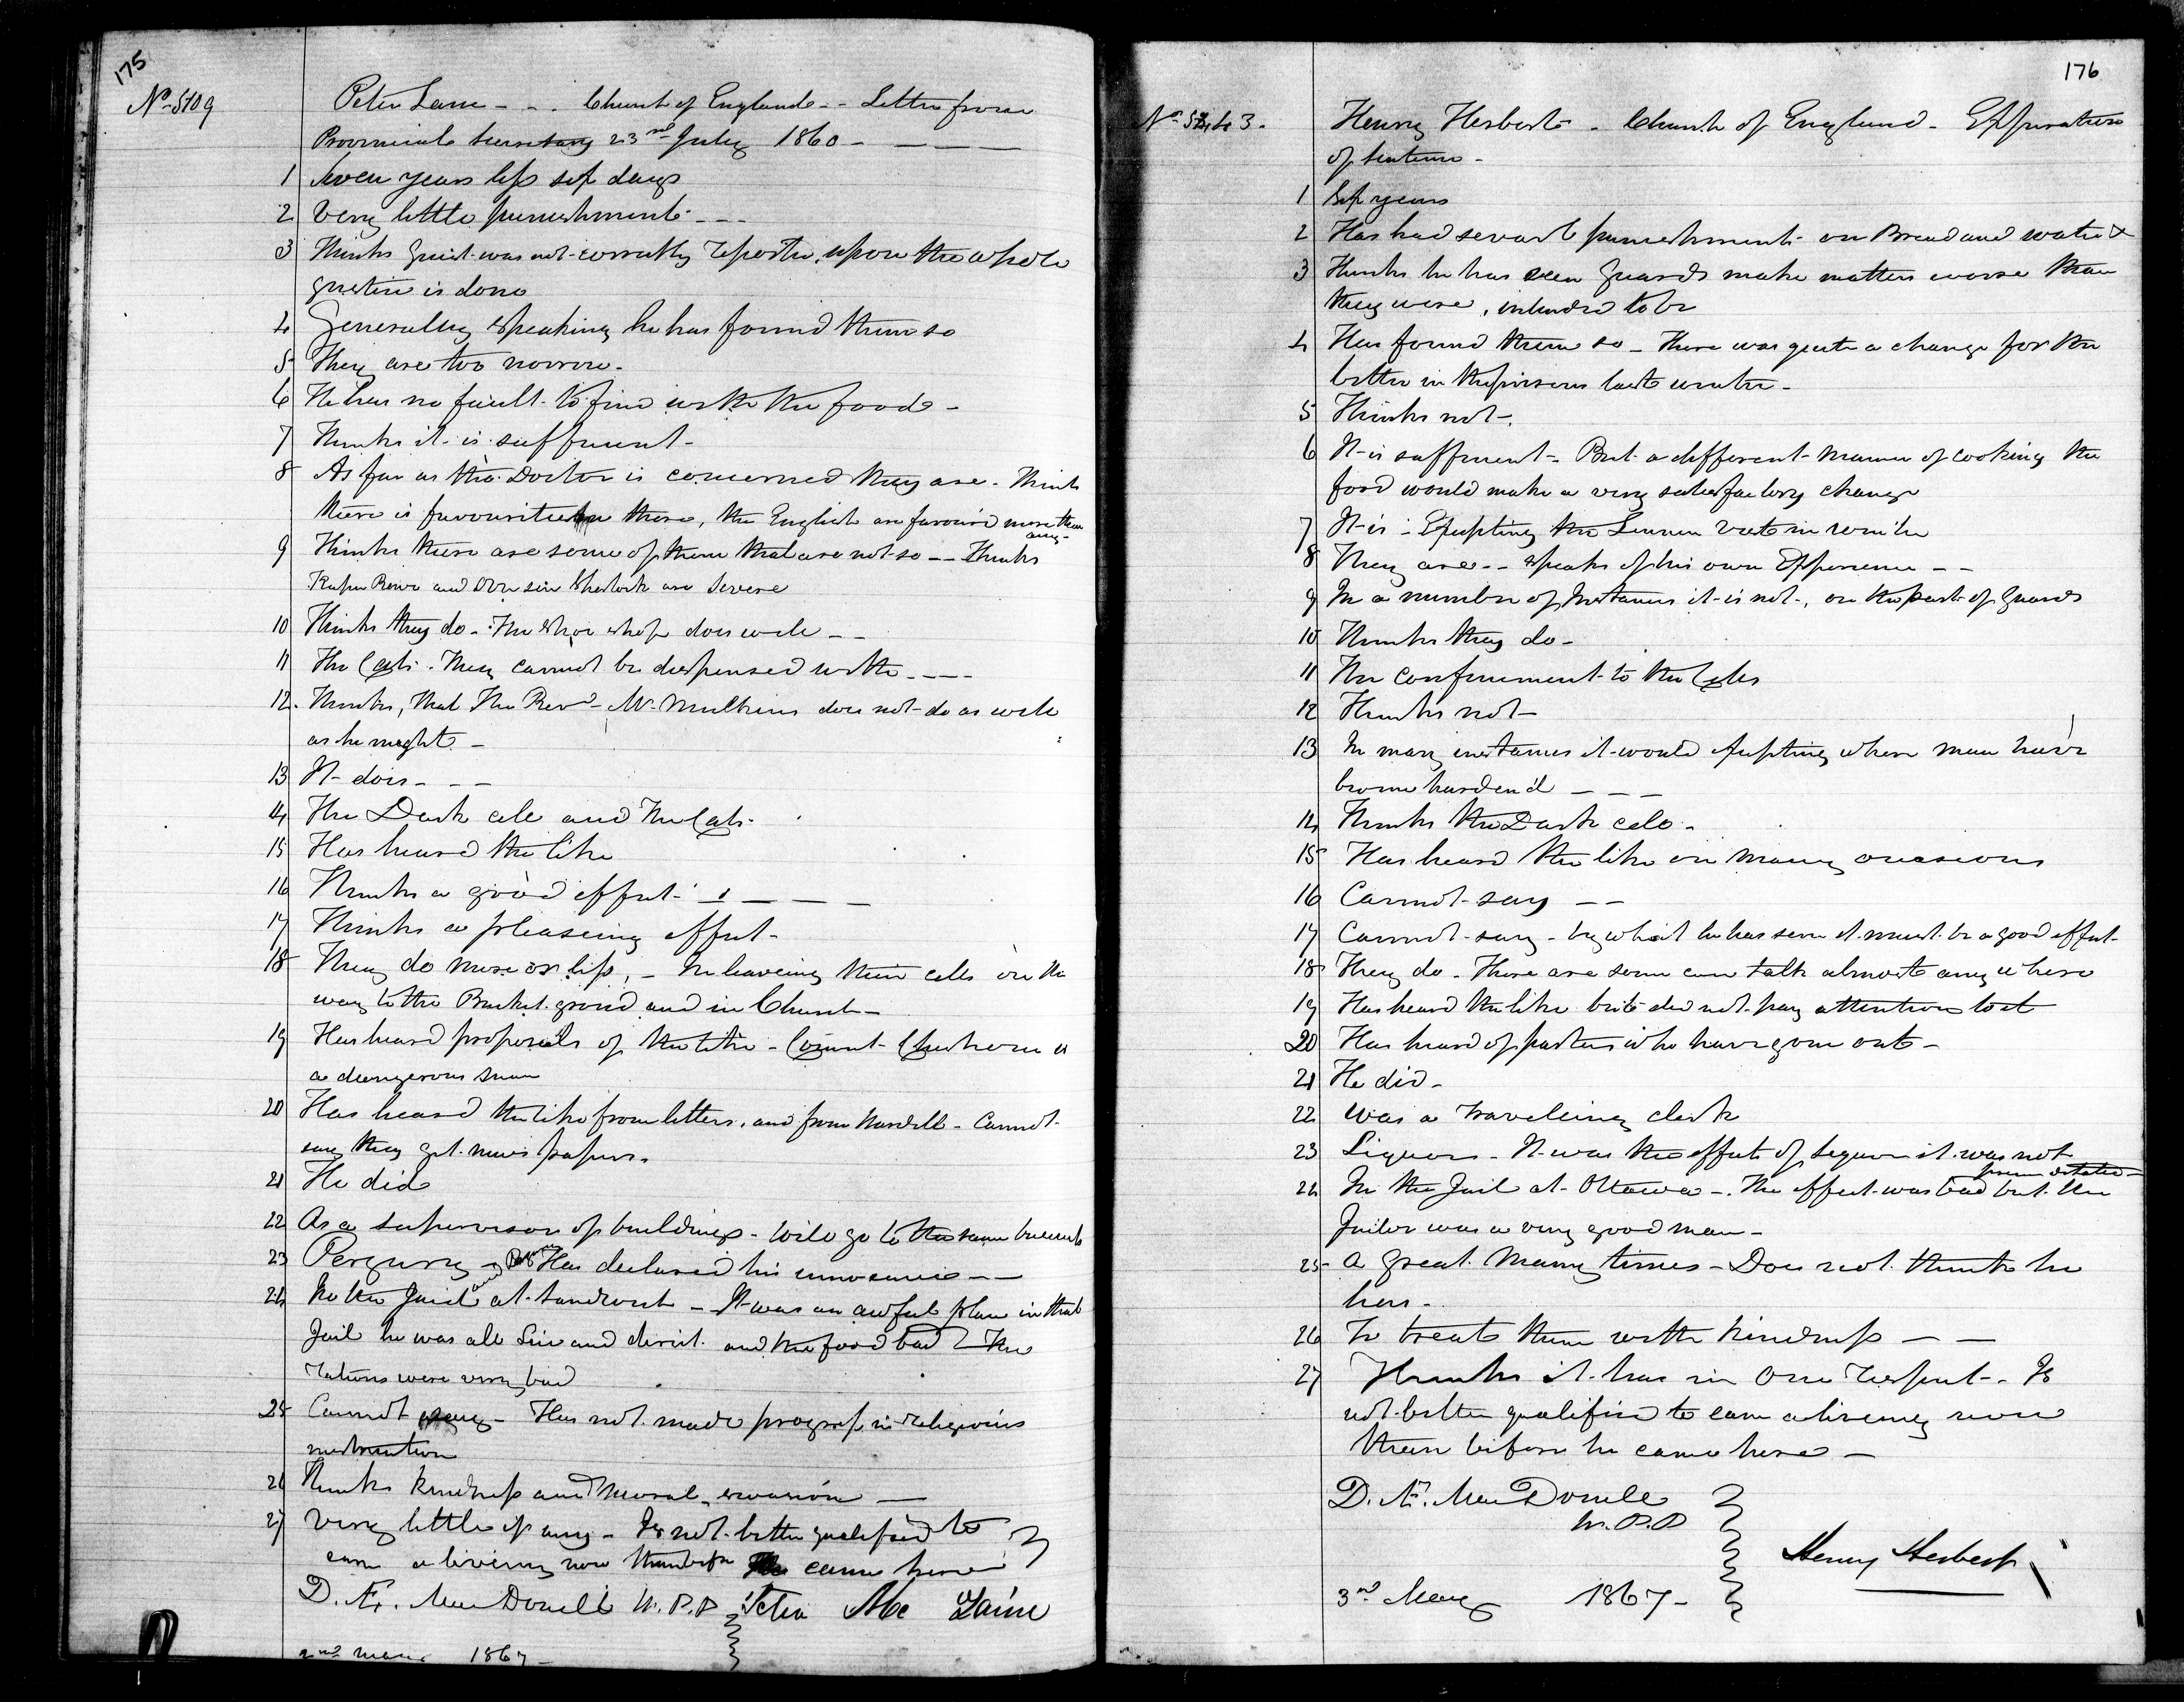 175
No 5109
Peter Lane - - . Church of England - - Letter from
Provincial Secretary 23rd July 1860 - - - -
1 Seven years less six days
2 Very little punishment - - -
3 Thinks Guard was not correctly reporter, upon the whole
justice is done
4 Generally speaking he has found them so
5 They are too narrow -
6 He has no fault to find with the food -
7 Thinks it is sufficient -
8 As far as the Doctor is concerned they are - Think
there is favouritism there, the English are favour'd more than
any -
9 Thinks there are some of them that are not so - - Thinks
Keeper Rowe and Overseer Sherlock are severe
10 Thinks they do - The Shoe shop does well - -
11 The Cats - They cannot be dispensed with - - - -
12 Thinks, that The Revd Mr Mulkins does not do as well
as he might -
13 It does - - -
14 The Dark cell and the Cats -
15 Has heard the like
16 Thinks a good effect - - - - -
17 Thinks a pleasing effect -
18 They do more or less, - In leaving their cells on the
way to the Bucket ground and in Church -
19 Has heard proposals of the like - Convict is
a dangerous man
20 Has heard the like from letters, and from - Cannot
say they get news papers -
21 He did
22 As a supervisor of buildings - Will go to the same business
23 Perjury - Has declared his innocence - -
24 In the Jail at Sandwich - It was an awful place in that
Jail he was all Lice and dirt and the food bad - The
rations were very bad
25 Cannot say - Has not made progress in religious
instruction
26 Thinks kindness and Moral suasion -
27 Very little if any - Is not better qualified to
earn a living now than before he came here
D. Æ. MacDonell W. P. P Peter Mc Laine
2nd May 1867 -
176
No 5243 -
Henry Herbert - Church of England - Expiration
of Sentence -
1 Six years
2 Has had several punishments on Bread and water
3 Thinks he has seen Guards make matters worse than
they were, intended to be
4 Has found them so - There was quite a change for the
better in the prisons last winter -
5 Thinks not -
6 It is sufficient - But a different manner of cooking the
food would make a very satisfactory change
7 It is - Excepting the Linnen in winter
8 They are - - speaks of his own Experience - -
9 In a number of Instances it is not, on the part of Guards
10 Thinks they do -
11 The confinement to the Cells
12 Thinks not -
13 In many instances it would Excepting where men have
become harden'd - - -
14 Thinks the Dark cell -
15 Has heard the like on many occasions
16 Cannot say - -
17 Cannot say - by what he has seen it must be a good effect -
18 They do - There are some can talk almost any where
19 Has heard the like but did not pay attention to it
20 Has heard of parties who have gone out -
21 He did -
22 Was a traveling clerk
23 Liquor - It was the effects of Liquor it was not
premeditated -
24 In the Jail at Ottawa - The effect was bad but the
Jailor was a very good man -
25 A great many times - Does not think he
has -
26 To treat them with kindness - -
27 Thinks it has in One respect - Is
not better qualified to earn a living now
than before he came here -
D. Æ. MacDonell
W. P. P
Henry Herbert
3rd May 1867 -